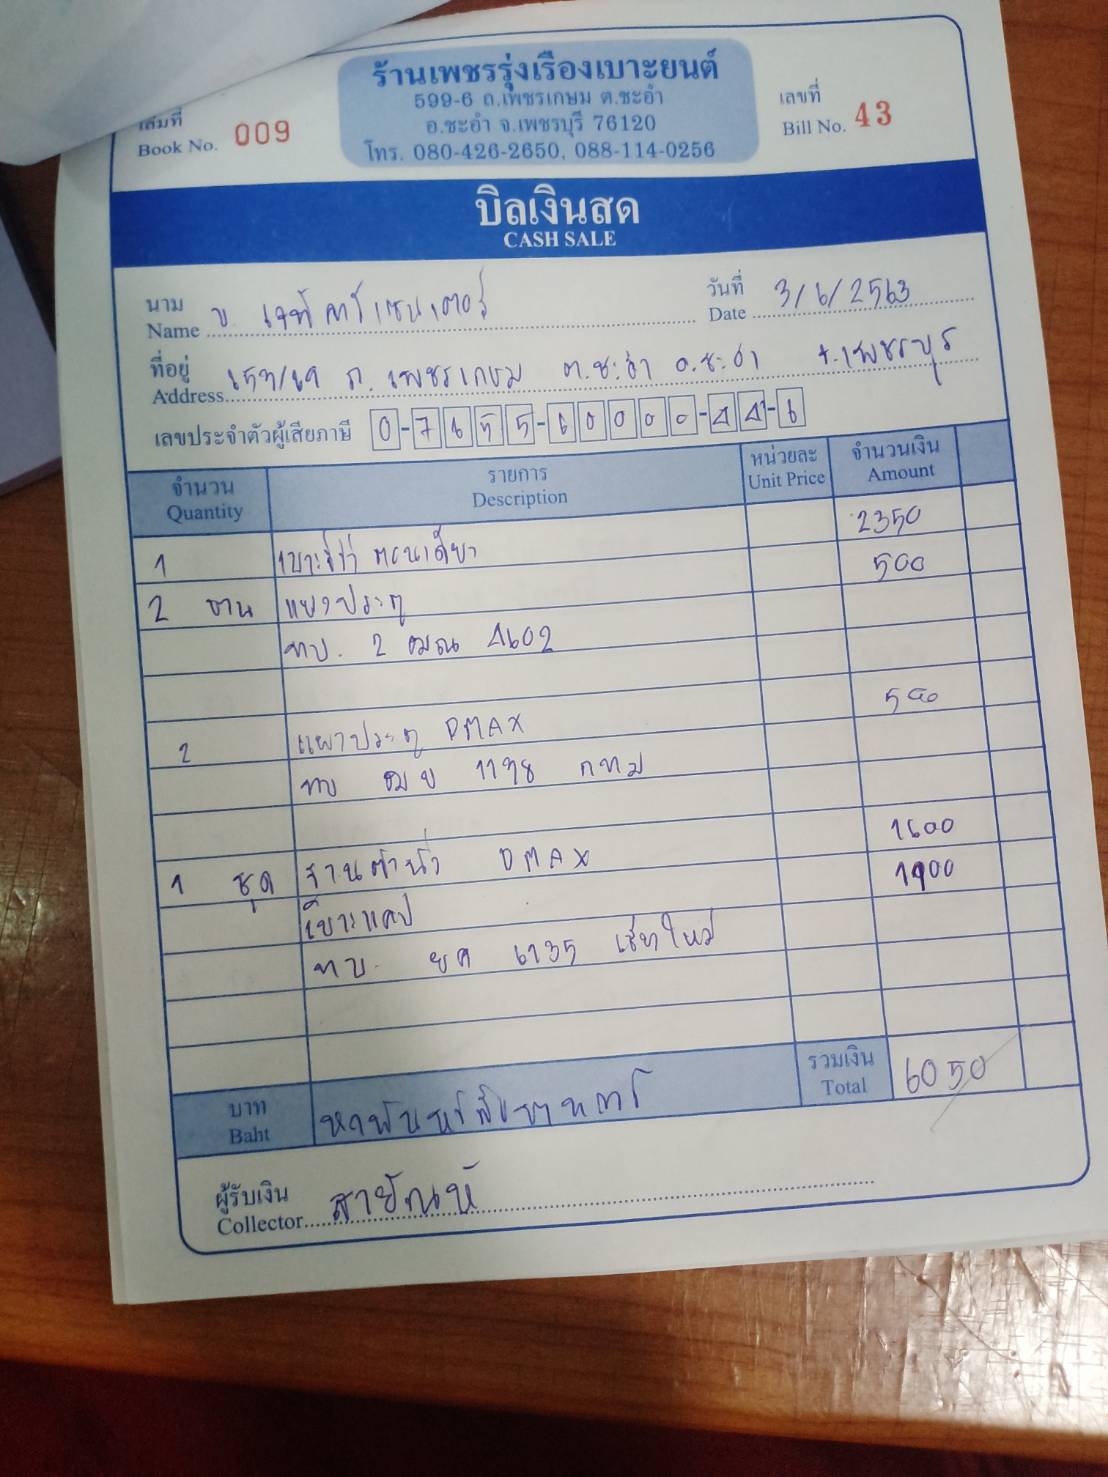 ร้านเพชรรุ่งเรืองเบาะยนต์
599-6 ถ.เพชรเกษม ต.ชะอำ
อ.ชะอำ จ.เพชรบุรี 76120
โทร. 080-426-2650, 088-114-0256
เล่มที่
Book No. 009
เลขที่
Bill No. 43
บิลเงินสด
CASH SALE
นาม
Name บ. เจที คาร์เซนเตอร์
วันที่
Date 3/6/2563
ที่อยู่
Address ถ. เพชรเกษม ต.ชะอำ อ.ชะอำ จ.เพชรบุรี
เลขประจำตัวผู้เสียภาษี 0-7655-60000-44-6
จำนวน รายการ หน่วยละ จำนวนเงิน
Quantity Description Unit Price Amount
1 2350
2 บาน แผงประตู 500
ทบ. 2 ฒณ 4602
2 แผงประตู DMAX 500
ทบ 1198 กทม
1 ชุด ฐานตำนิ่ว DMAX 1600
เบาะแคป 1100
ทบ. ยค 6735 เชียงใหม่
บาท
Baht
รวมเงิน
Total 6050
ผู้รับเงิน
Collector สายัณห์